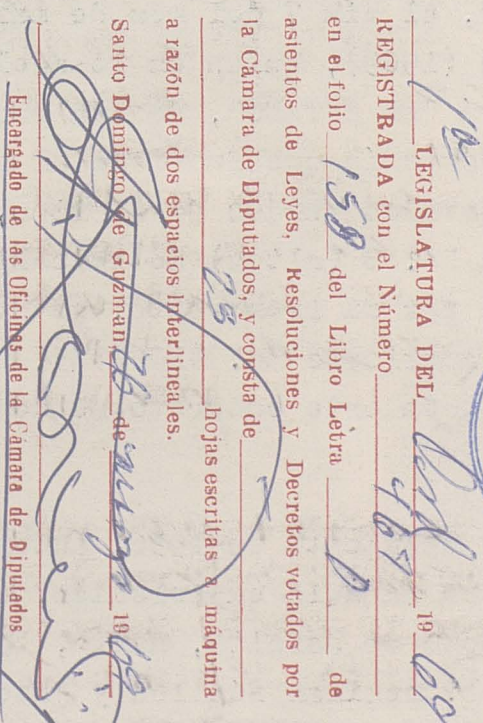 1a LEGISLATURA DEL Ord 1969
REGISTRADA con el Número 467
en el folio 158 del Libro Letra D de
asientos de Leyes, Resoluciones y Decretos votados por
la Cámara de Diputados, y consta de
hojas escritas a máquina
a razón de dos espacios interlineales.
Santo Domingo de Guzmán, de 1969
Encargado de las Oficinas de la Cámara de Diputados